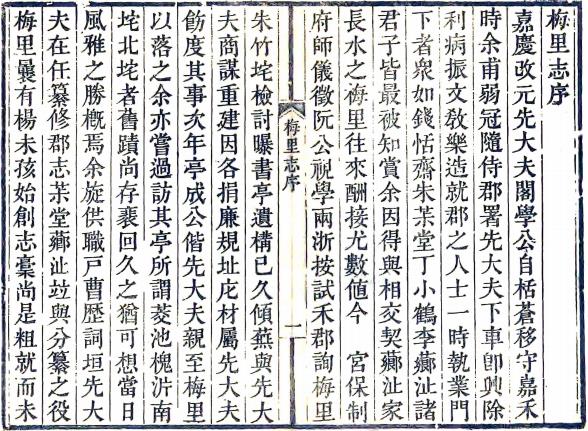 梅里志序
嘉慶改元先大夫閣學公自栝蒼移守嘉禾
時余甫弱冠隨侍郡署先大夫下車卽興除
利病振文敎樂造就郡之人士一時執業門
下者衆如錢恬齋朱茮堂丁小鶴李薌沚諸
君子皆最被知賞余因得與相交契薌沚家
長水之梅里往來酬接尤數値今　宮保制
府師儀徵阮公視學兩浙按試禾郡詢梅里
梅里志序
一
朱竹垞檢討曝書亭遺構已久傾蕪與先大
夫商謀重建因各捐廉規址庀材屬先大夫
飭度其事次年亭成公偕先大夫親至梅里
以落之余亦嘗過訪其亭所謂菱池槐沜南
垞北垞者舊蹟尚存裵回久之猶可想當日
風雅之勝槪焉余旋供職戸曹歷詞垣先大
夫在任纂修郡志茮堂薌沚竝與分纂之役
梅里曩有楊未孩始創志稾尚是粗就而未